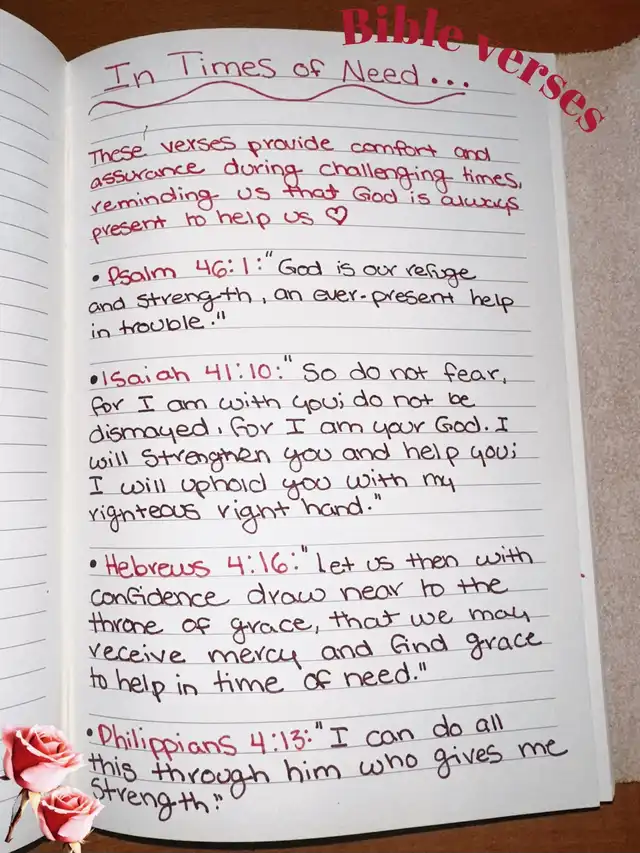 Bible verses
In Times of Need...
These verses provide comfort and
assurance during challenging times,
reminding us that God is always
present to help us ♡
• Psalm 46:1: "God is our refuge
and strength, an ever-present help
in trouble."
• Isaiah 41:10: "So do not fear,
for I am with you; do not be
dismayed, for I am your God. I
will strenghen you and help you;
I will uphold you with my
rignteous right hand."
• Hebrews 4:16: "let us then with
confidence draw near to the
throne of grace, that we may
receive mercy and find grace
to help in time of need."
• Philippians 4:13: "I can do all
this through him who gives me
strength."